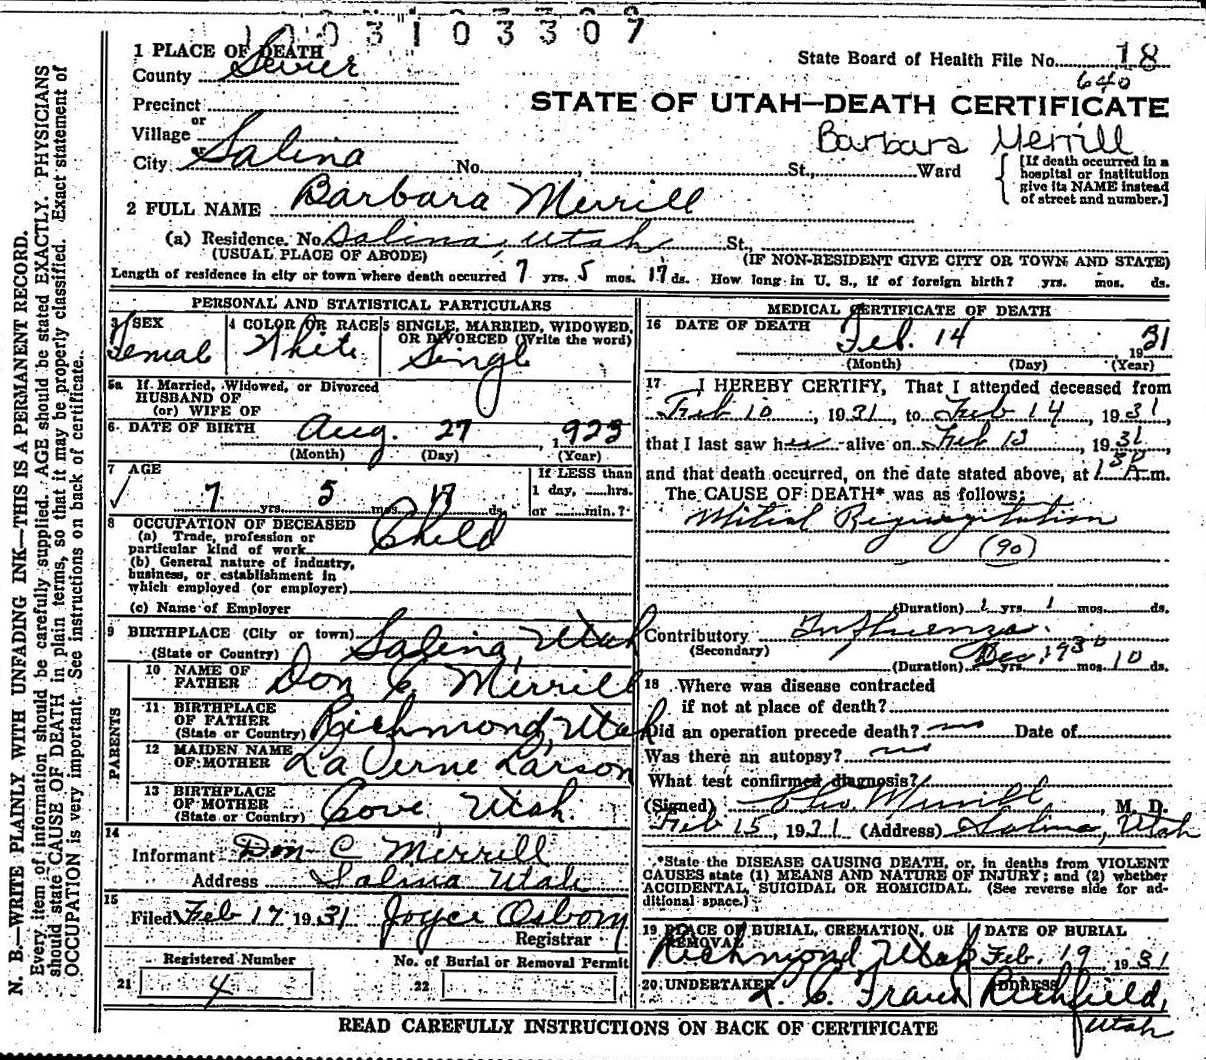 1003103309
1 PLACE OF DEATH
County Sevier
State Board of Health File No. 18
640
Precinct
or
Village
or
City Salina No. St., Ward
STATE OF UTAH—DEATH CERTIFICATE
Barbara Merrill
[If death occurred in a
hospital or institution
give its NAME instead
of street and number.]
2 FULL NAME Barbara Merrill
(a) Residence. No. Salina, Utah St.,
(USUAL PLACE OF ABODE) (IF NON-RESIDENT GIVE CITY OR TOWN AND STATE)
Length of residence in city or town where death occurred 7 yrs. 5 mos. 17 ds. How long in U. S., if of foreign birth? yrs. mos. ds.
PERSONAL AND STATISTICAL PARTICULARS
3 SEX 4 COLOR OR RACE 5 SINGLE, MARRIED, WIDOWED,
OR DIVORCED (Write the word)
Femal White Singl
5a If Married, Widowed, or Divorced
HUSBAND OF
(or) WIFE OF
6 DATE OF BIRTH Aug. 27 1923
(Month) (Day) (Year)
7 AGE If LESS than
7 yrs. 5 mos. 17 ds. 1 day, hrs.
or min.?
8 OCCUPATION OF DECEASED
(a) Trade, profession or
particular kind of work Child
(b) General nature of industry,
business, or establishment in
which employed (or employer)
(c) Name of Employer
9 BIRTHPLACE (City or town) Salina, Utah
(State or Country)
PARENTS
10 NAME OF
FATHER Don C Merrill
11 BIRTHPLACE
OF FATHER
(State or Country) Richmond, Utah
12 MAIDEN NAME
OF MOTHER LaVerne Larson
13 BIRTHPLACE
OF MOTHER
(State or Country) Cove, Utah.
14
Informant Don C Merrill
Address Salina Utah
15
Filed Feb 17 1931 Joyce Osborn
Registrar
Registered Number No. of Burial or Removal Permit
21 4 22
MEDICAL CERTIFICATE OF DEATH
16 DATE OF DEATH
Feb. 14 1931
(Month) (Day) (Year)
17 I HEREBY CERTIFY, That I attended deceased from
Feb 10, 1931, to Feb 14, 1931,
that I last saw her alive on Feb 13 1931
and that death occurred, on the date stated above, at A.m.
The CAUSE OF DEATH* was as follows:
Mitral Regurgitation
(90)
(Duration) 1 yrs. 1 mos. ds.
Contributory Influenza.
(Secondary)
Dec. 1930
(Duration) yrs. mos. 10 ds.
18 Where was disease contracted
if not at place of death?
Did an operation precede death? no Date of
Was there an autopsy? no
What test confirmed diagnosis?
(Signed) Merrill, M. D.
Feb 15, 1931 (Address) Salina, Utah
*State the DISEASE CAUSING DEATH, or, in deaths from VIOLENT
CAUSES state (1) MEANS AND NATURE OF INJURY; and (2) whether
ACCIDENTAL, SUICIDAL OR HOMICIDAL. (See reverse side for ad-
ditional space.)
19 PLACE OF BURIAL, CREMATION, OR DATE OF BURIAL
REMOVAL
Richmond Utah Feb. 19 1931
20 UNDERTAKER ADDRESS
Richfield,
Utah
READ CAREFULLY INSTRUCTIONS ON BACK OF CERTIFICATE
N. B.—WRITE PLAINLY WITH UNFADING INK—THIS IS A PERMANENT RECORD.
Every item of information should be carefully supplied. AGE should be stated EXACTLY. PHYSICIANS
should state CAUSE OF DEATH in plain terms, so that it may be properly classified. Exact statement of
OCCUPATION is very important. See instructions on back of certificate.